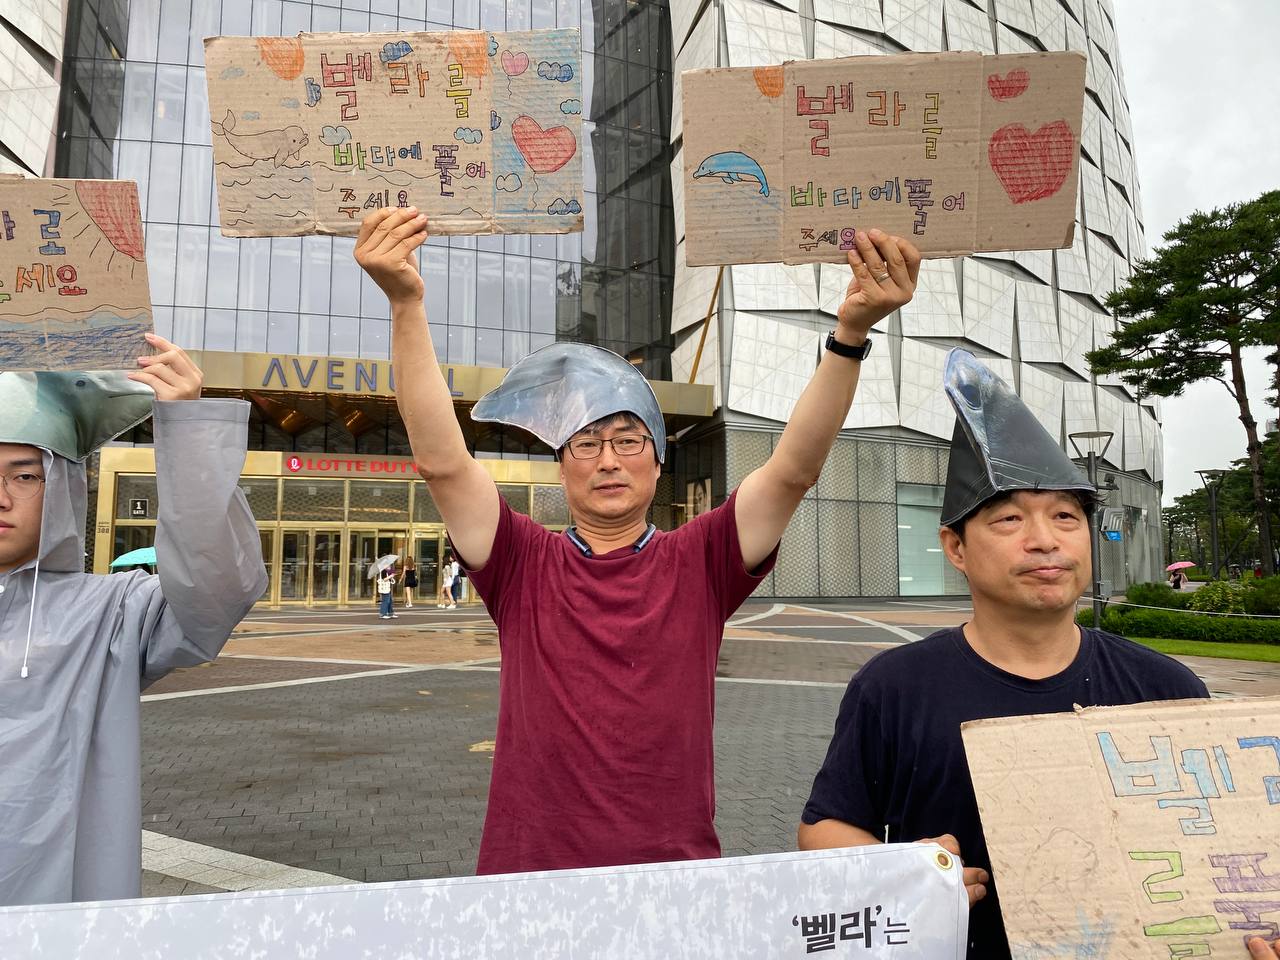 벨라를
바다에 풀어
주세요
벨라를
바다에풀어
주세요
로
세요
AVENUEL
LOTTE DUTY
1
GATE
벨
를
'벨라'는